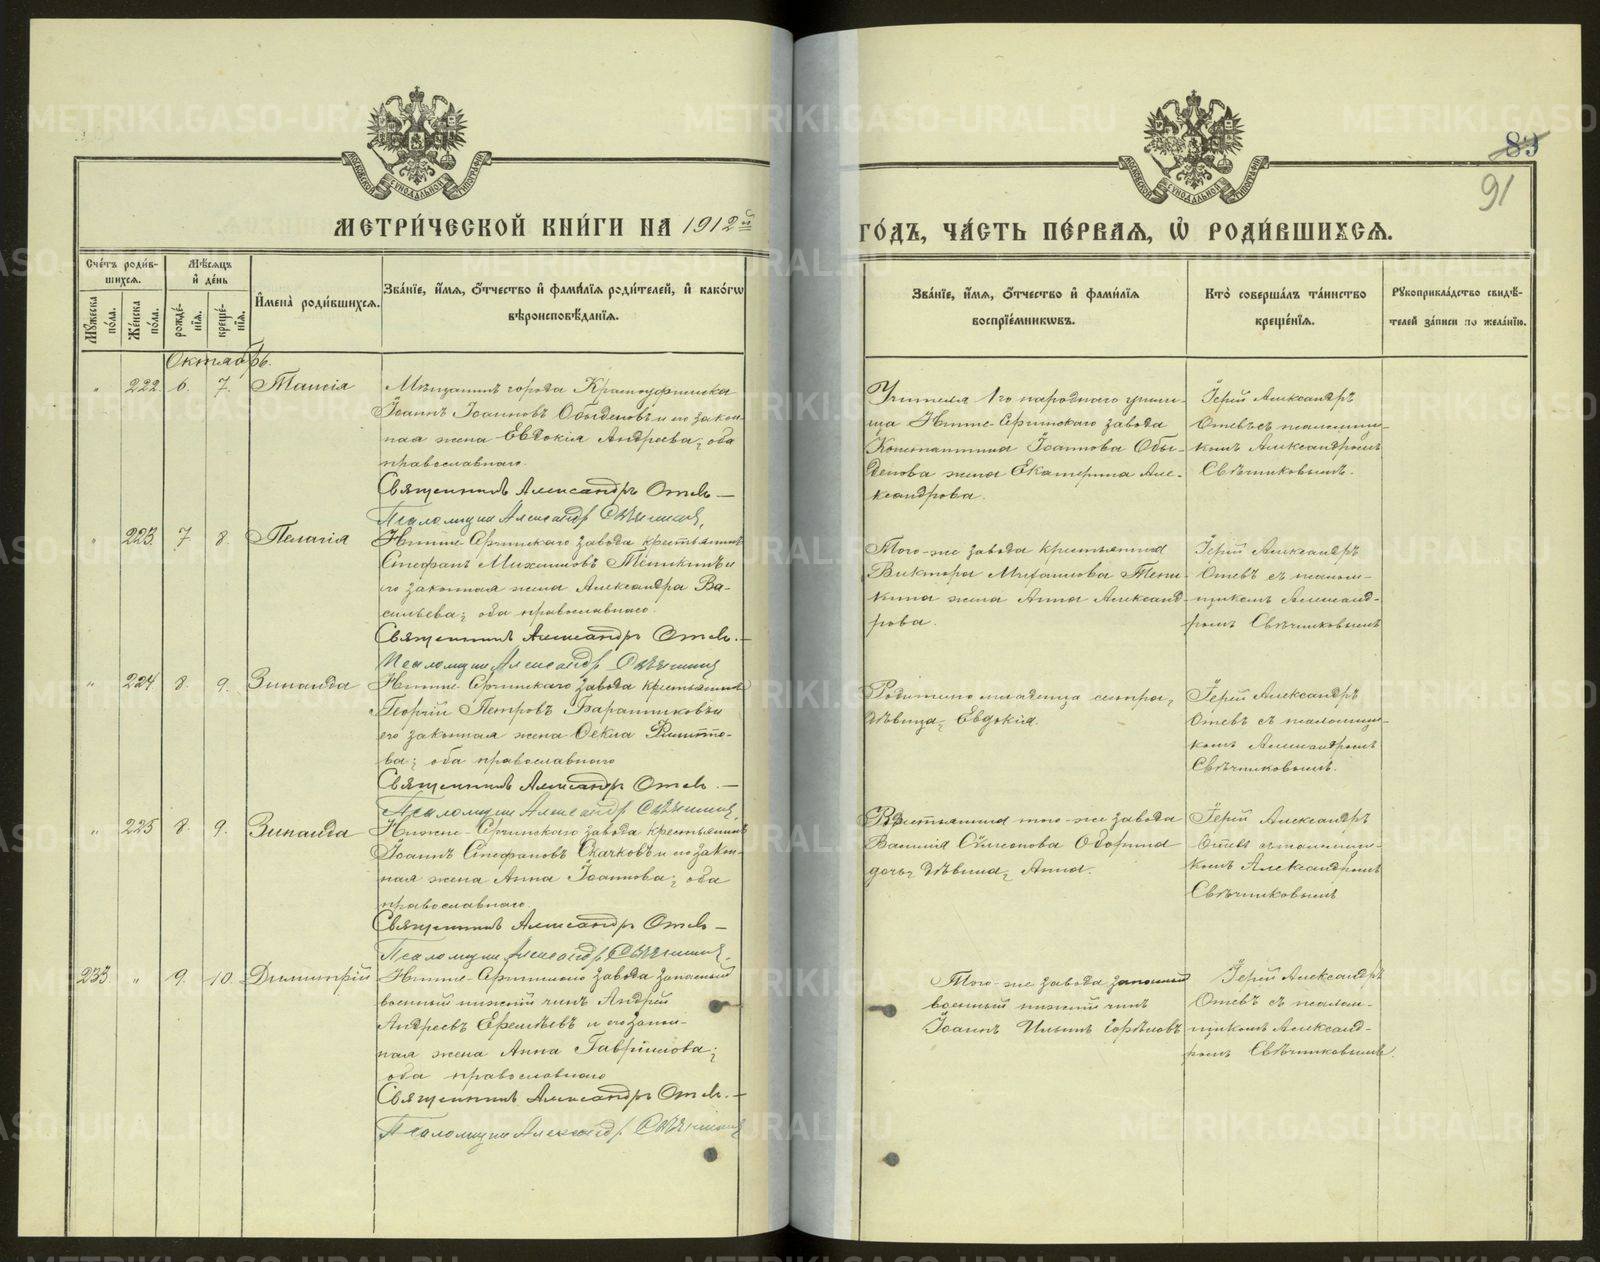 83
91
МЕТРИ́ЧЕСКОЙ КНИ́ГИ НА 1912й ГО́ДЪ, ЧА́СТЬ ПЕ́РВАЯ, Ѡ РОДИ́ВШИХСЯ.
МОСКОВСКОЙ СѴНОДАЛЬНОЙ ТИПОГРАФІИ
МОСКОВСКОЙ СѴНОДАЛЬНОЙ ТИПОГРАФІИ
Сче́тъ роди́в-
шихся.
Мужеска по́ла.
Же́нска по́ла.
Мѣ́сяцъ
и҆ де́нь
рожде́-
нїя.
креще́-
нїя.
И҆мена̀ роди́вшихся.
Зва́нїе, и҆́мя, ѻ҆́тчество и҆ фами́лїя роди́телей, и҆ како́гѡ
вѣроисповѣ́данїя.
Зва́нїе, и҆́мя, ѻ҆́тчество и҆ фами́лїя
воспрїе́мникѡвъ.
Кто̀ соверша́лъ та́инство
креще́нїя.
Рꙋкоприкла́дство свидѣ́-
телей за́писи по жела́нїю.
Октябрь.
" 222. 6. 7. Таисія
Мѣщанинъ города Красноуфимска
Іоаннъ Іоанновъ Обыденовъ и его закон-
ная жена Евдокія Андреева; оба
православнаго.
Священникъ Александръ Отевъ
Псаломщикъ Александръ Свѣчниковъ.
Учителя 1го народнаго учили-
ща Нижне-Сергинскаго завода
Константина Іоаннова Обы-
денова жена Екатерина Але-
ксандрова.
Іерей Александръ
Отевъ съ псаломщи-
комъ Александромъ
Свѣчниковымъ.
" 223. 7. 8. Пелагія
Нижне-Сергинскаго завода крестьянинъ
Стефанъ Михаиловъ Тепикинъ и
его законная жена Александра Ва-
сильева; оба православнаго.
Священникъ Александръ Отевъ.
Псаломщикъ Александръ Свѣчниковъ
Того-же завода крестьянина
Виктора Михаилова Тепи-
кина жена Анна Александ-
рова.
Іерей Александръ
Отевъ съ псалом-
щикомъ Александ-
ромъ Свѣчниковымъ
" 224 8. 9. Зинаида
Нижне-Сергинскаго завода крестьянинъ
Георгій Петровъ Баранниковъ и
его законная жена Ѳекла Филиппо-
ва; оба православнаго
Священникъ Александръ Отевъ.
Псаломщикъ Александръ Свѣчниковъ.
младенца сестра,
дѣвица, Евдокія.
Іерей Александръ
Отевъ съ псаломщи-
комъ Александромъ
Свѣчниковымъ.
" 225 8. 9. Зинаида
Нижне-Сергинскаго завода крестьянинъ
Іоаннъ Стефановъ Скачковъ и его закон-
ная жена Анна Іоаннова; оба
православнаго.
Священникъ Александръ Отевъ
Псаломщикъ Александръ Свѣчниковъ.
Крестьянина того-же завода
Василія Симеонова Оборина
дочь дѣвица, Анна.
Іерей Александръ
Отевъ съ псаломщи-
комъ Александромъ
Свѣчниковымъ
233. " 9. 10. Димитрій
Нижне-Сергинскаго завода запасный
военный нижній чинъ Андрей
Андреевъ Еремѣевъ и его закон-
ная жена Анна Гавриилова;
оба православнаго
Священникъ Александръ Отевъ.
Псаломщикъ Александръ Свѣчниковъ
Того-же завода запасный
военный нижній чинъ
Іоаннъ Ильинъ
Іерей Александръ
Отевъ съ псалом-
щикомъ Александ-
ромъ Свѣчниковымъ.
METRIKI.GASO-URAL.RU